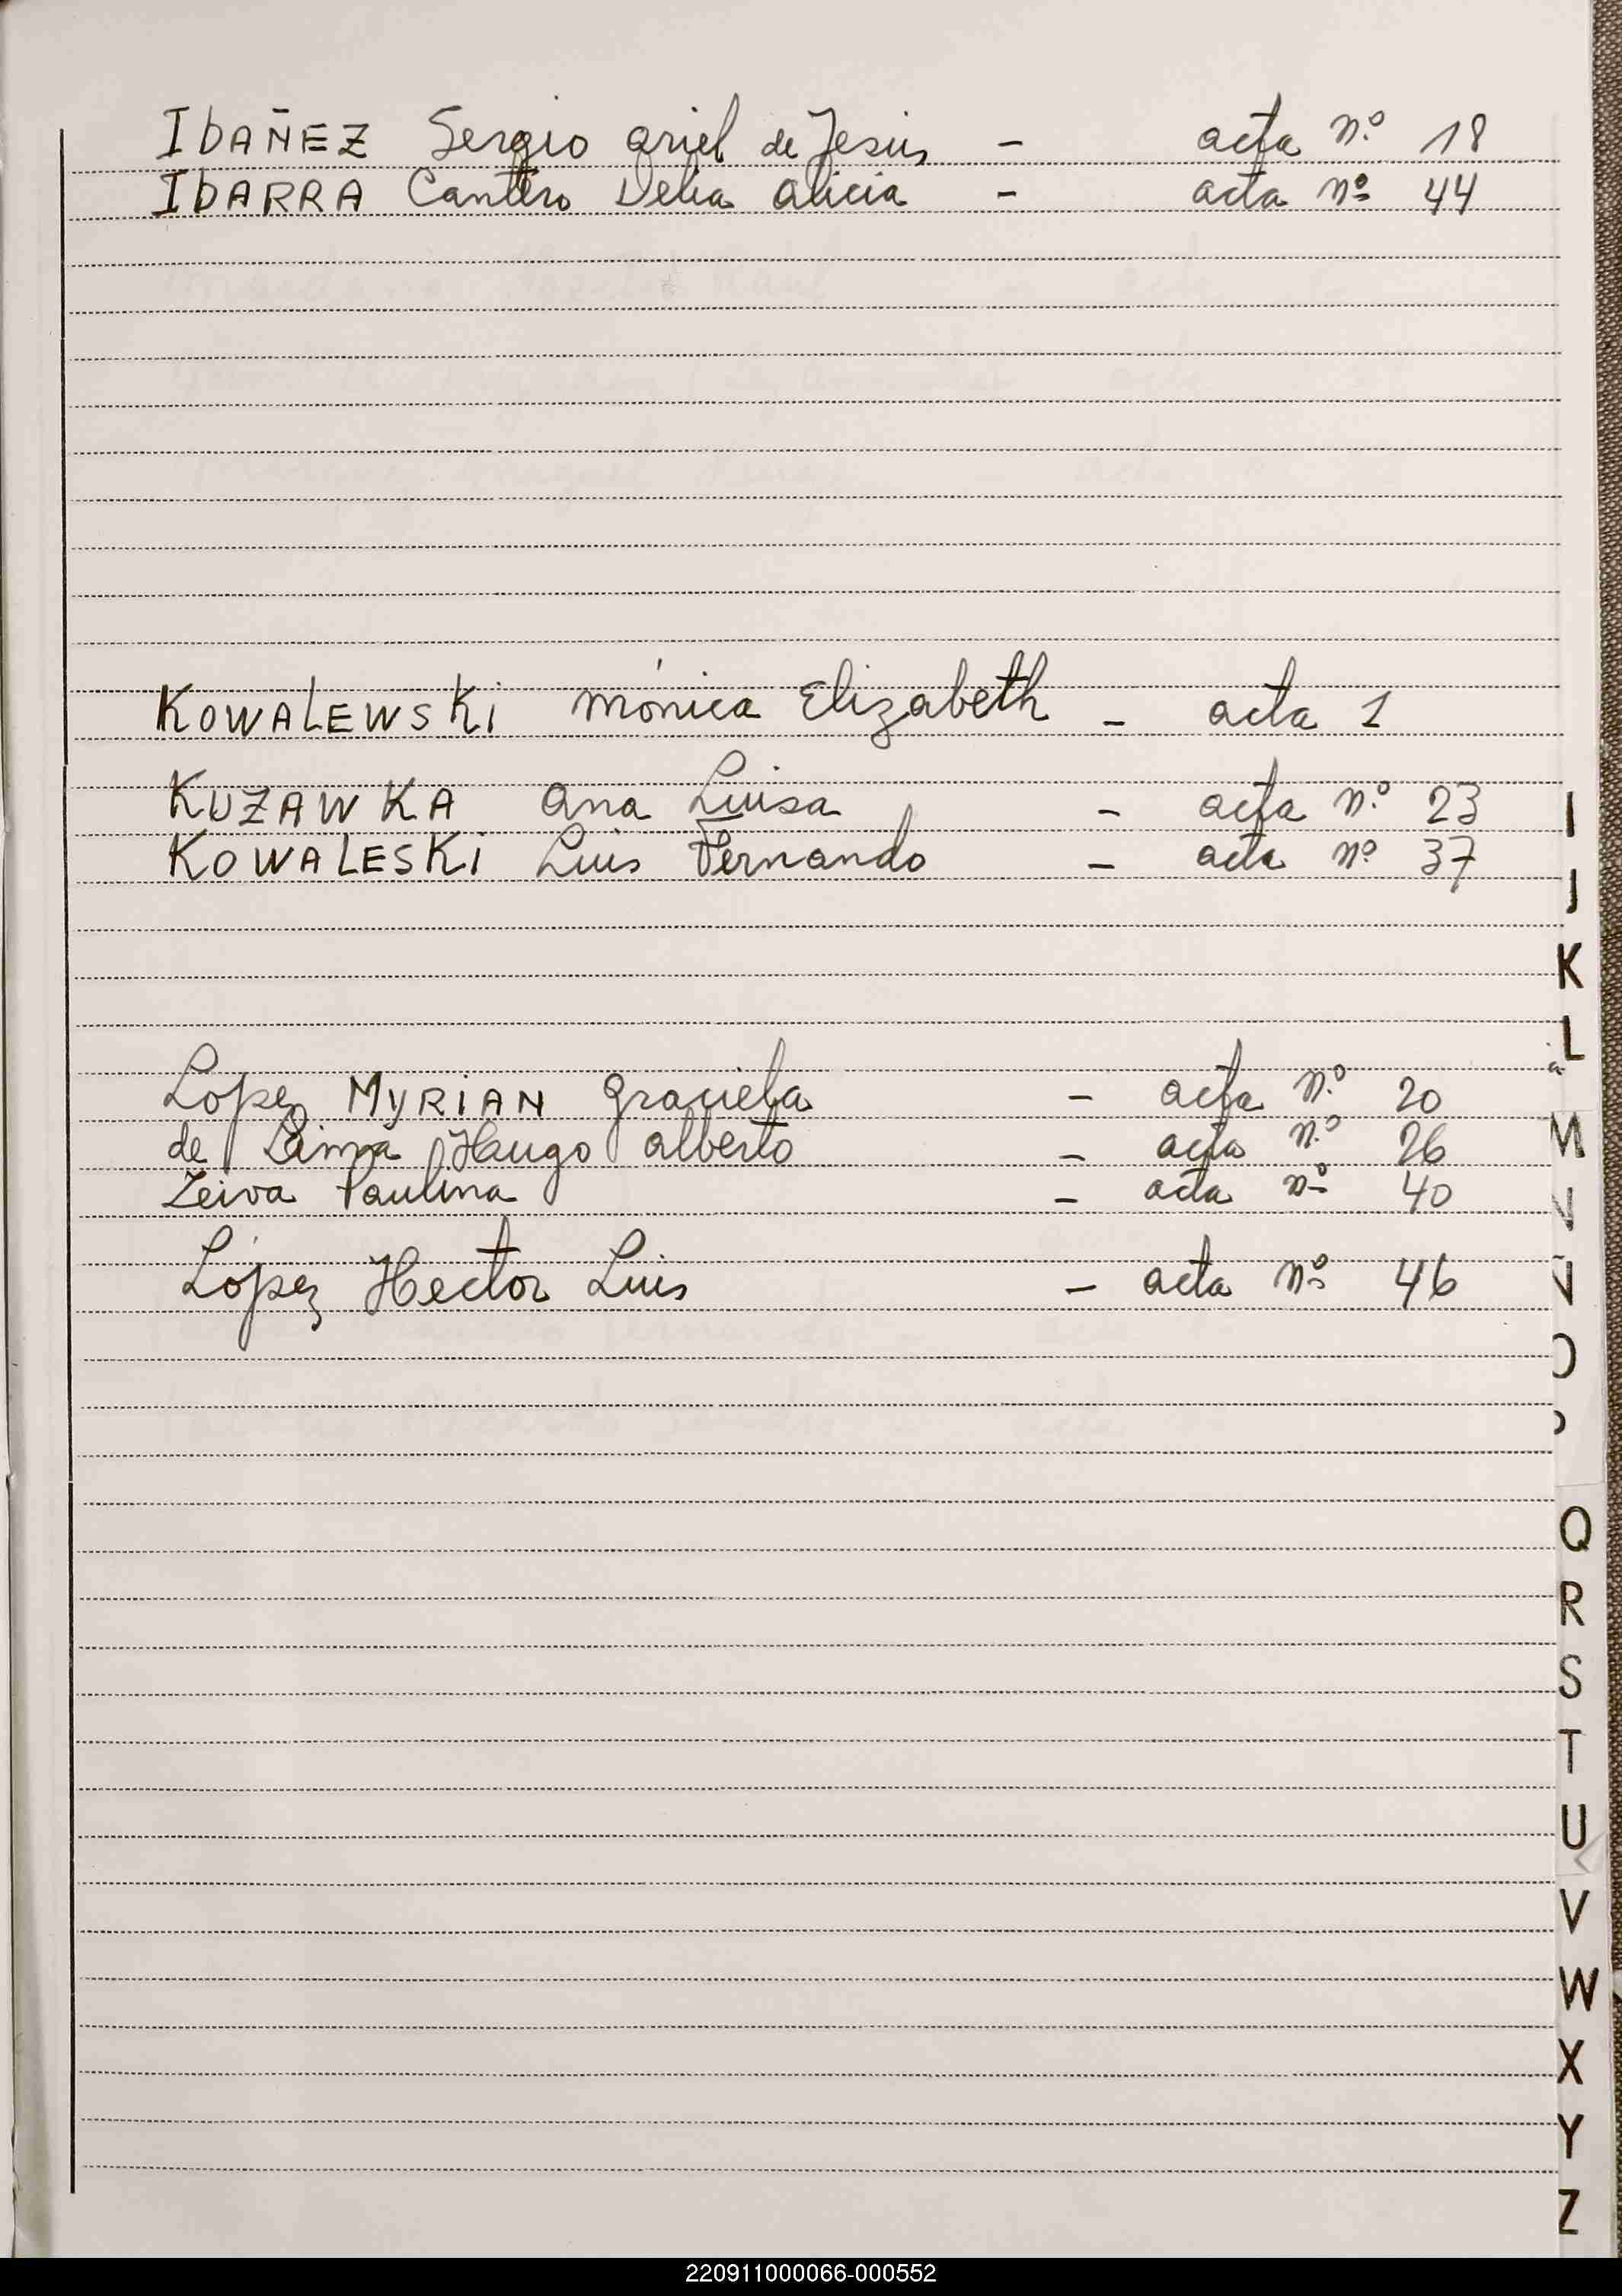 IBAÑEZ Sergio Ariel de Jesús - acta n.º 18
IBARRA Cantero Delia Alicia - acta nº 44
KOWALEWSKI Mónica Elizabeth - acta 1
KUZAWKA Ana Luisa - acta n.º 23
KOWALESKI Luis Fernando - acta nº 37
Lopez MYRIAN Graciela - acta n.º 20
de Lima Hugo Alberto - acta n.º 26
Leiva Paulina - acta nº 40
López Hector Luis - acta nº 46
I
J
K
L
M
N
Ñ
O
P
Q
R
S
T
U
V
W
X
Y
Z
220911000066-000552